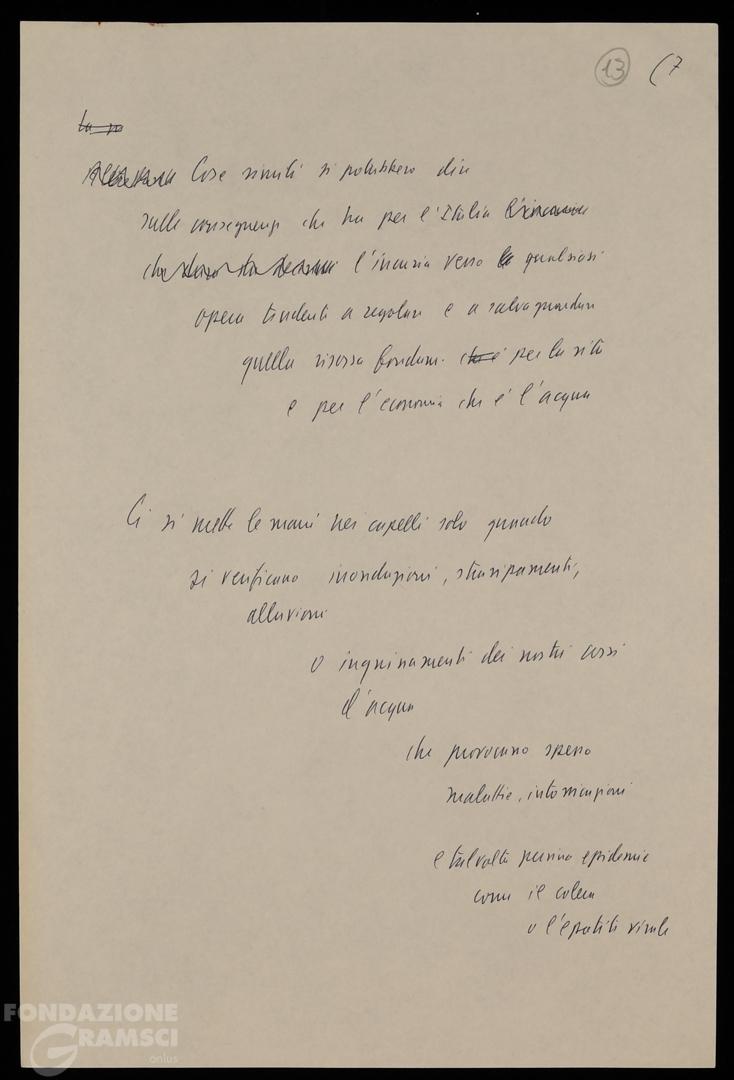 13 (7
La
Cose simili si potrebbero dire
sulle conseguenze che ha per l'Italia
che l'incuria verso la qualsiasi
opera tendente a regolare e a salvaguardare
quella risorsa fondam. che è per la vita
e per l'economia che è l'acqua
Ci si mette le mani nei capelli solo quando
si verificano inondazioni, straripamenti,
alluvioni
o inquinamenti dei nostri corsi
d'acqua
che provocano spesso
malattie, intossicazioni
e talvolta persino epidemie
come il colera
o l'epatite virale
FONDAZIONE
GRAMSCI
onlus